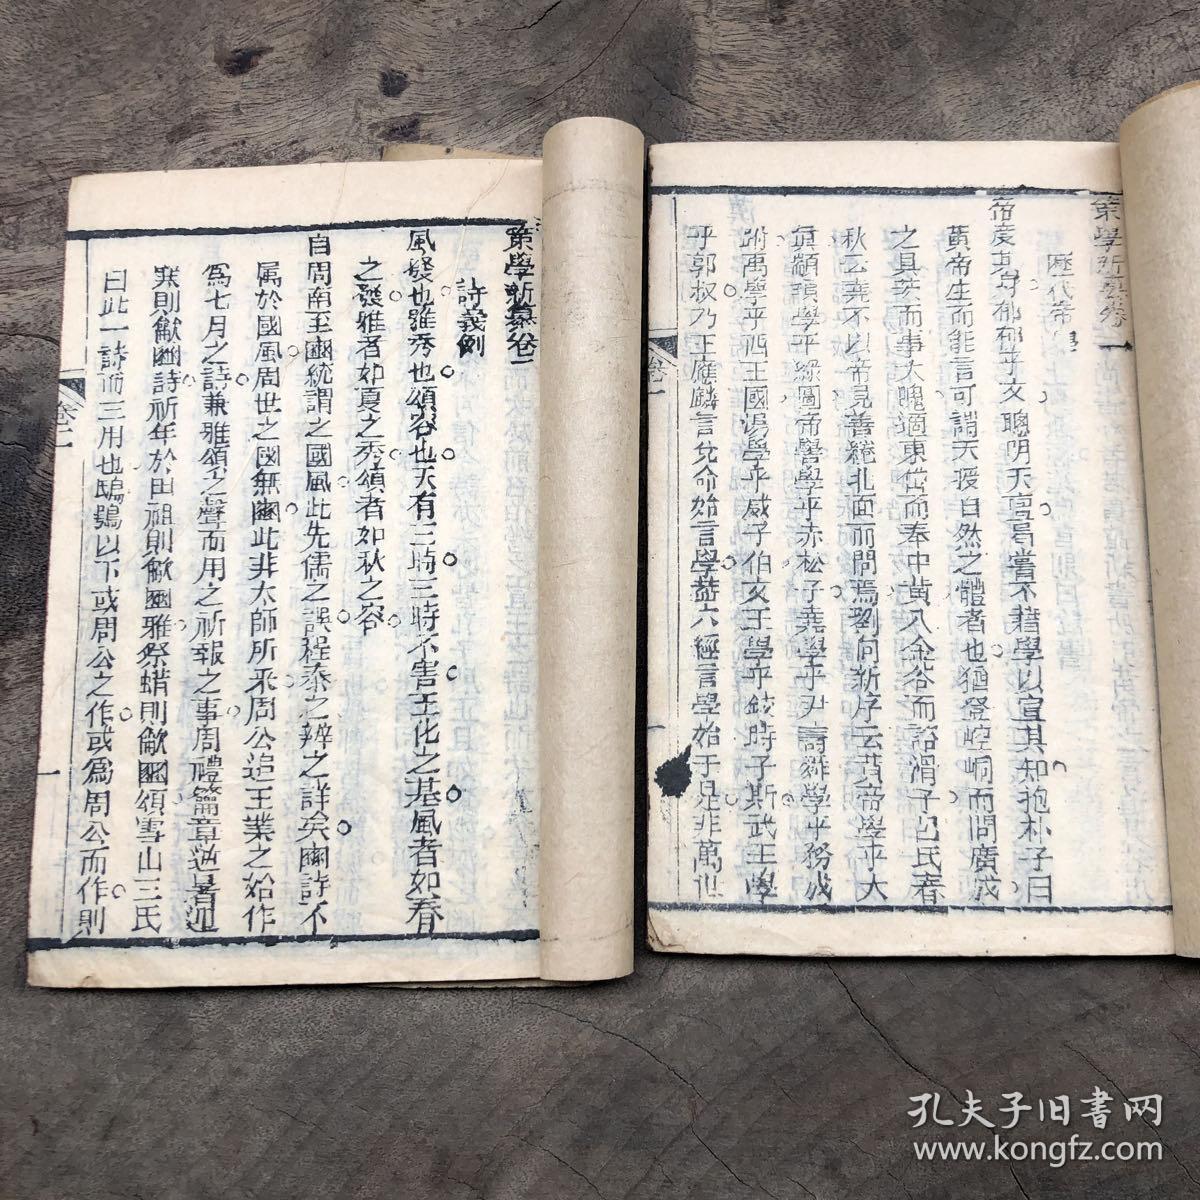 策學新纂卷一
歷代帝學
帝度其對郁郁乎文聰明天亶曷嘗不藉學以宣其知抱朴子曰
黃帝生而能言可謂天授自然之體者也猶登崆峒而問廣成
之具茨而事大隗適東岱而奉中黃入金谷而諮涓子呂氏春
秋云堯不以帝見善綣北面而問焉劉向新序云昔帝學乎大
真顓頊學乎綠圖帝嚳學乎赤松子堯學乎尹壽舜學乎務成
跗禹學乎西王國湯學乎威子伯文王學乎鉸時子斯武王學
乎郭叔乃王應麟言兌命始言學葢六經言學始于是非萬世
卷一
策學新纂卷二
詩義例
風發也雅秀也頌容也天有三時三時不害王化之基風者如春
之發雅者如夏之秀頌者如秋之容
自周南至豳統謂之國風此先儒之誤程泰之辨之詳矣豳詩不
属於國風周世之國無豳此非太師所采周公追王業之始作
爲七月之詩兼雅頌之聲而用之祈報之事周禮籥章逆暑迎
寒則龡豳詩祈年於田祖則龡豳雅祭蜡則龡豳頌雪山王氏
曰此一詩而三用也鴟鴞以下或周公之作或爲周公而作則
卷二
一
孔夫子旧书网
www.kongfz.com